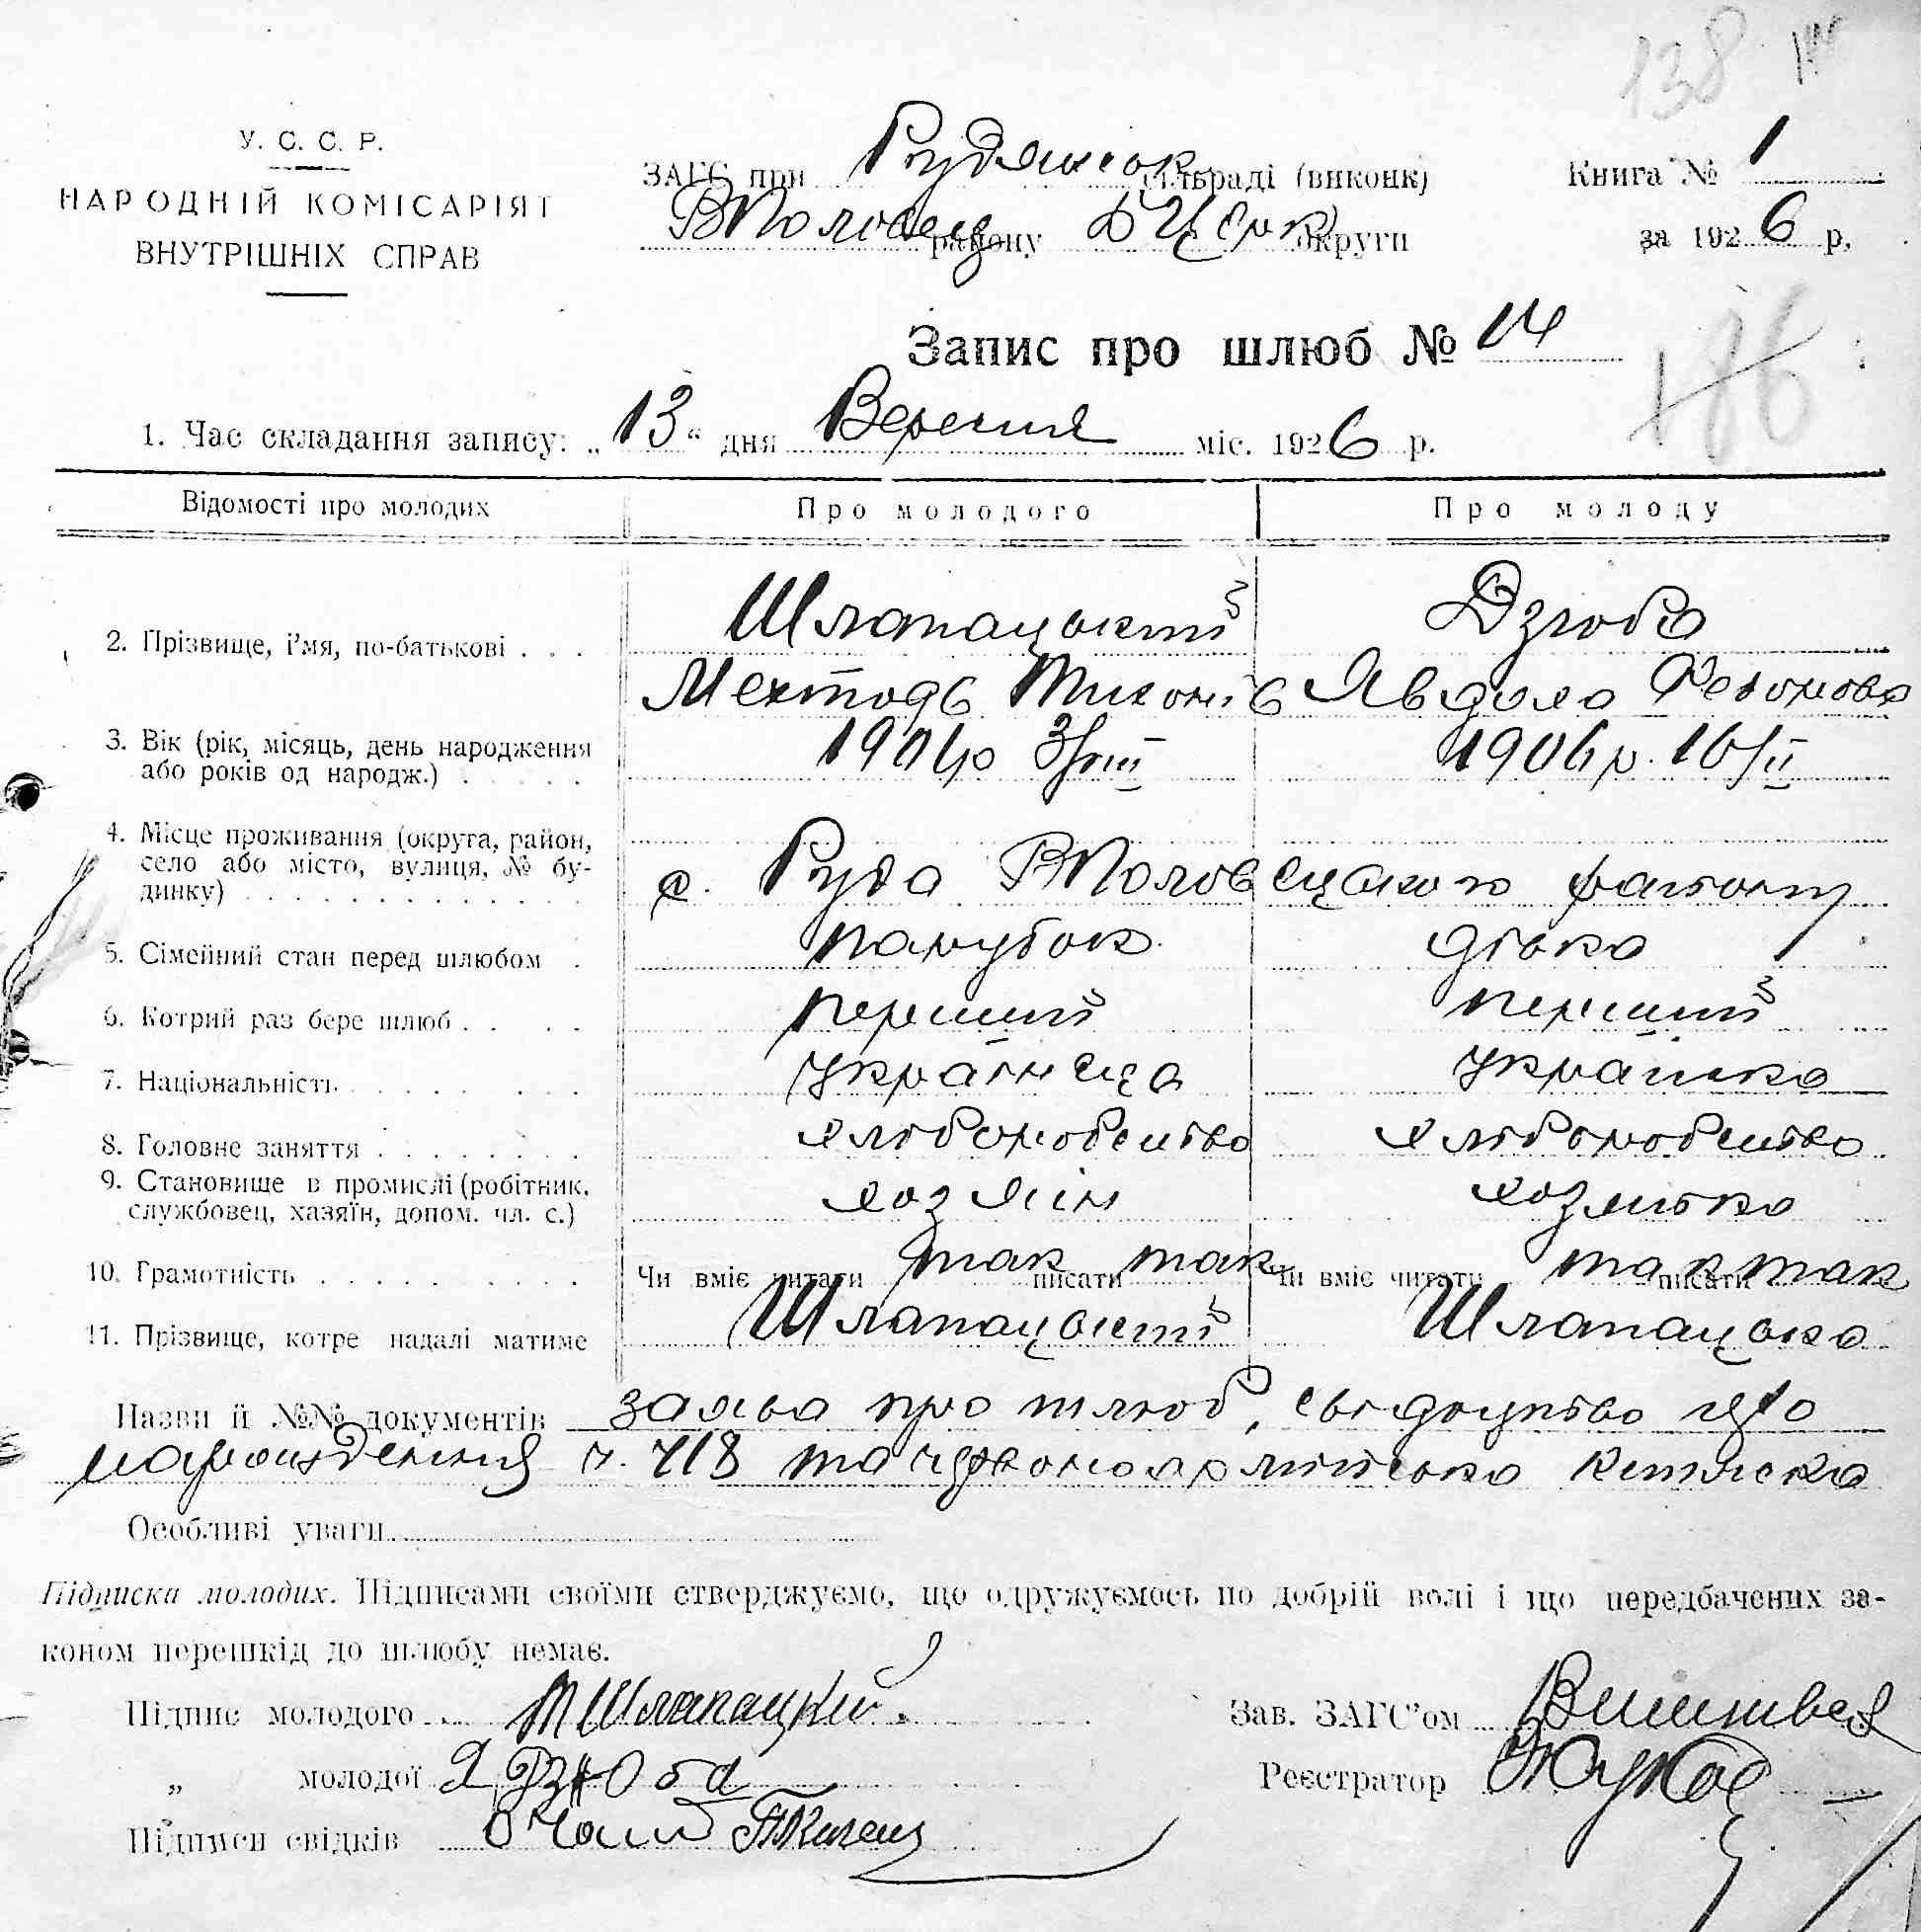 138
У. С. С. Р.
НАРОДНІЙ КОМІСАРІЯТ
ВНУТРІШНІХ СПРАВ
ЗАГС при Рудянськ сільраді (виконк) Книга № 1
ВПоловец району БЦерк округи за 1926 р.
Запис про шлюб № 14
186
1. Час складання запису: „13“ дня Вересня міс. 1926 р.
Відомості про молодих Про молодого Про молоду
2. Прізвище, і'мя, по-батькові . . . Шлапацький Дзюба
Мехтодь Тихонів Явдоха Федорова
3. Вік (рік, місяць, день народження
або років од народж.) 3/VIII 1906 р. 16/II
4. Місце проживання (округа, район,
село або місто, вулиця, № бу-
динку) с. Руда ВПоловецького району
5. Сімейний стан перед шлюбом . парубок дівка
6. Котрий раз бере шлюб перший перший
7. Національність українець українка
8. Головне заняття хліборобство хліборобство
9. Становище в промислі (робітник,
службовец, хазяїн, допом. чл. с.) хозяін хозяйка
10. Грамотність Чи вміє читати так писати так Чи вміє читати так писати так
11. Прізвище, котре надалі матиме Шлапацький Шлапацька
Назви й №№ документів заява про шлюб, свідоцтво про
нарождення ч. 718 та червоноармійська книжка
Особливі уваги
Підписки молодих. Підписами своїми стверджуємо, що одружуємось по добрій волі і що передбачених за-
коном перешкід до шлюбу немає.
Підпис молодого М Шлапацкий. Зав. ЗАГС'ом
„ молодої Я Дзюба Реєстратор
Підписи свідків